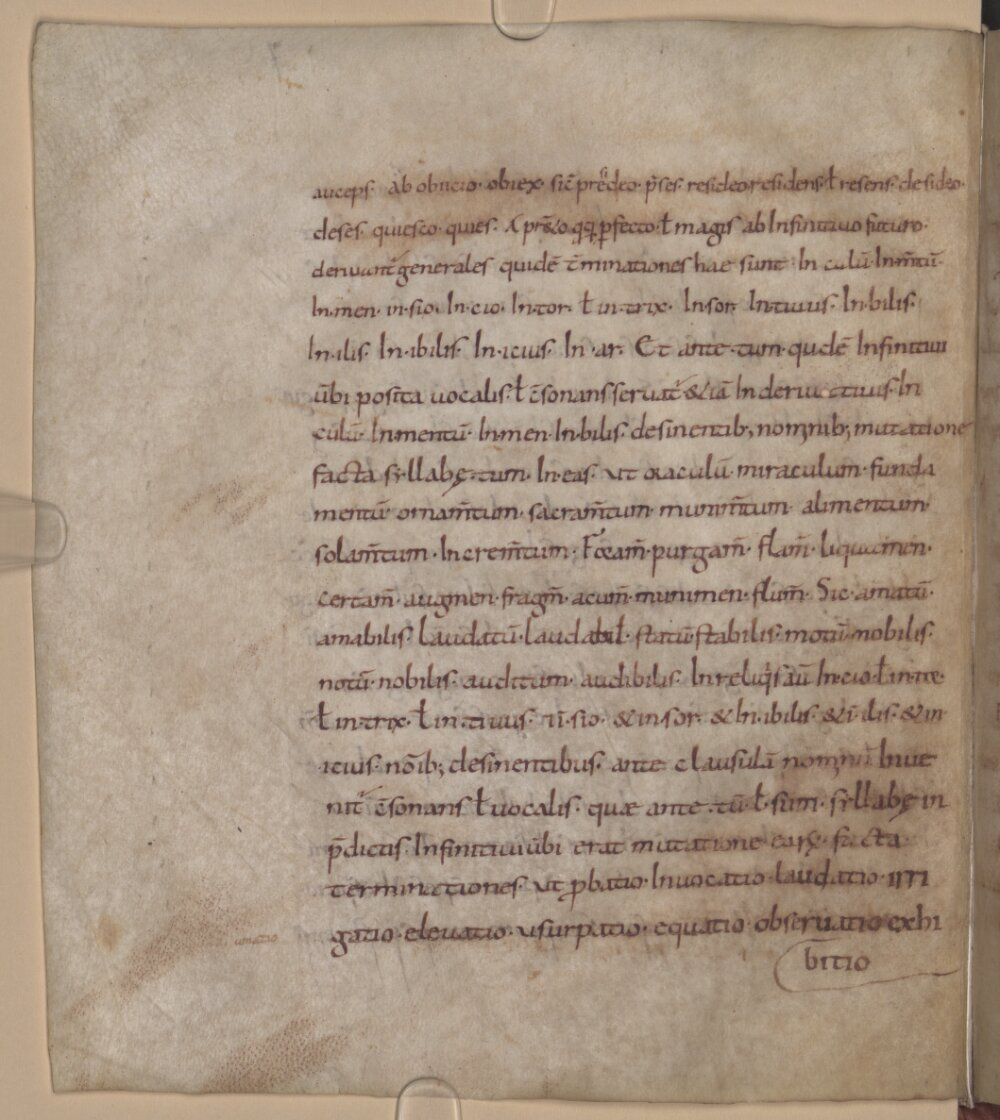 auceps· ab obiicio· obiex· sic̄ preͦdeo· p̄ses· resideo· residens· ł resens· desideo·
deses· quiesco· quies· A pret̄&o qͦqͦ ꝑfecto· ł magis ab Infinitiuo futuro·
deriuant᷒ generales quidē t̄minationes hae sunt· In culū· In m̄tū·
In·men· in·sio· In·cio· In·tor· ł in·trix· In·sor· In·tiuus· In·bilis·
In·ilis· In·ibilis· In·icius· In·ar· Et ante·tum·quidē Infinitiui
ūbi posita uocalis· ł c̄sonans seruat᷒ &iā In deriuatiuis· In
culū· In mentū· In·men· In·bilis· desinentib; nominib; mutatione
facta syllabę·tum· In·eas· ut oraculū· miraculum· funda
mentū· ornam̄tum· sacram̄tum· munim̄tum· alimentum·
solam̄tum· Increm̄tum· Foram̄· purgam̄· flam̄· liquamen·
certam̄· augmen· fragm̄· acum̄· munimen· flum̄· Sic· amatū·
amabilis· laudatū· laudabił· statū· stabilis· motū· mobilis·
notū· nobilis· auditum· audibilis· In reliqͥs āū In·cio· ł in·tor·
ł in·trix· ł in·tiuus· ī·sio· & in·sor· & In·ibilis· & ī·ilis· & in·
icius· nōib; desinentibus· ante clausulā nominū Inue
nit᷒ c̄sonans ł uocalis· quæ ante·tū·ł·sum·syllabę in
p̄dictis· Infinitiui ūbi erat mutatione earꝫ· facta·
terminationes· ut ꝓbatio· Inuocatio· laudatio· irri
gatio· eleuatio· usurpatio· equatio· obseruatio· exhi
bitio